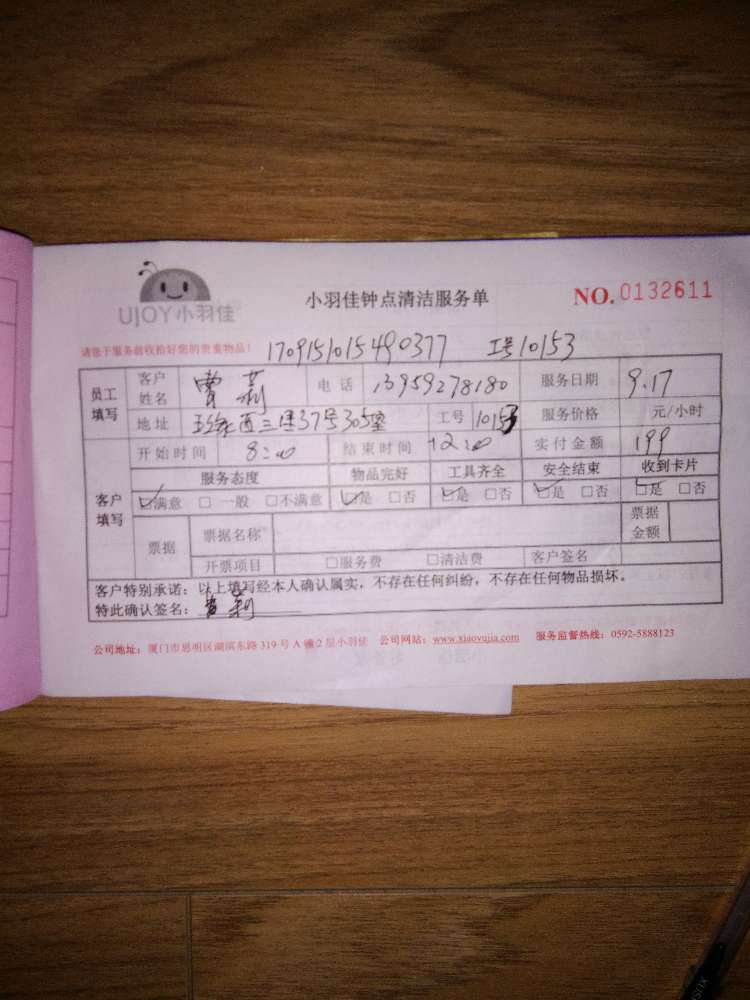 UJOY小羽佳
小羽佳钟点清洁服务单
NO. 0132611
请您于服务前收拾好您的贵重物品!
170915101549037​7 工号10153
员工填写 客户姓名 曹莉 电话 13959278180 服务日期 9.17
地址 西三里37号305室 工号 10153 服务价格 元/小时
客户填写 开始时间 8:00 结束时间 12:00 实付金额 199
服务态度 物品完好 工具齐全 安全结束 收到卡片
☑满意 □一般 □不满意 ☑是 □否 ☑是 □否 ☑是 □否 ☑是 □否
票据 票据名称 票据金额
开票项目 □服务费 □清洁费 客户签名
客户特别承诺:以上填写经本人确认属实,不存在任何纠纷,不存在任何物品损坏。
特此确认签名:曹莉
公司地址:厦门市思明区湖滨东路319号A幢2层小羽佳 公司网站:www.xiaoyujia.com 服务监督热线:0592-5888123